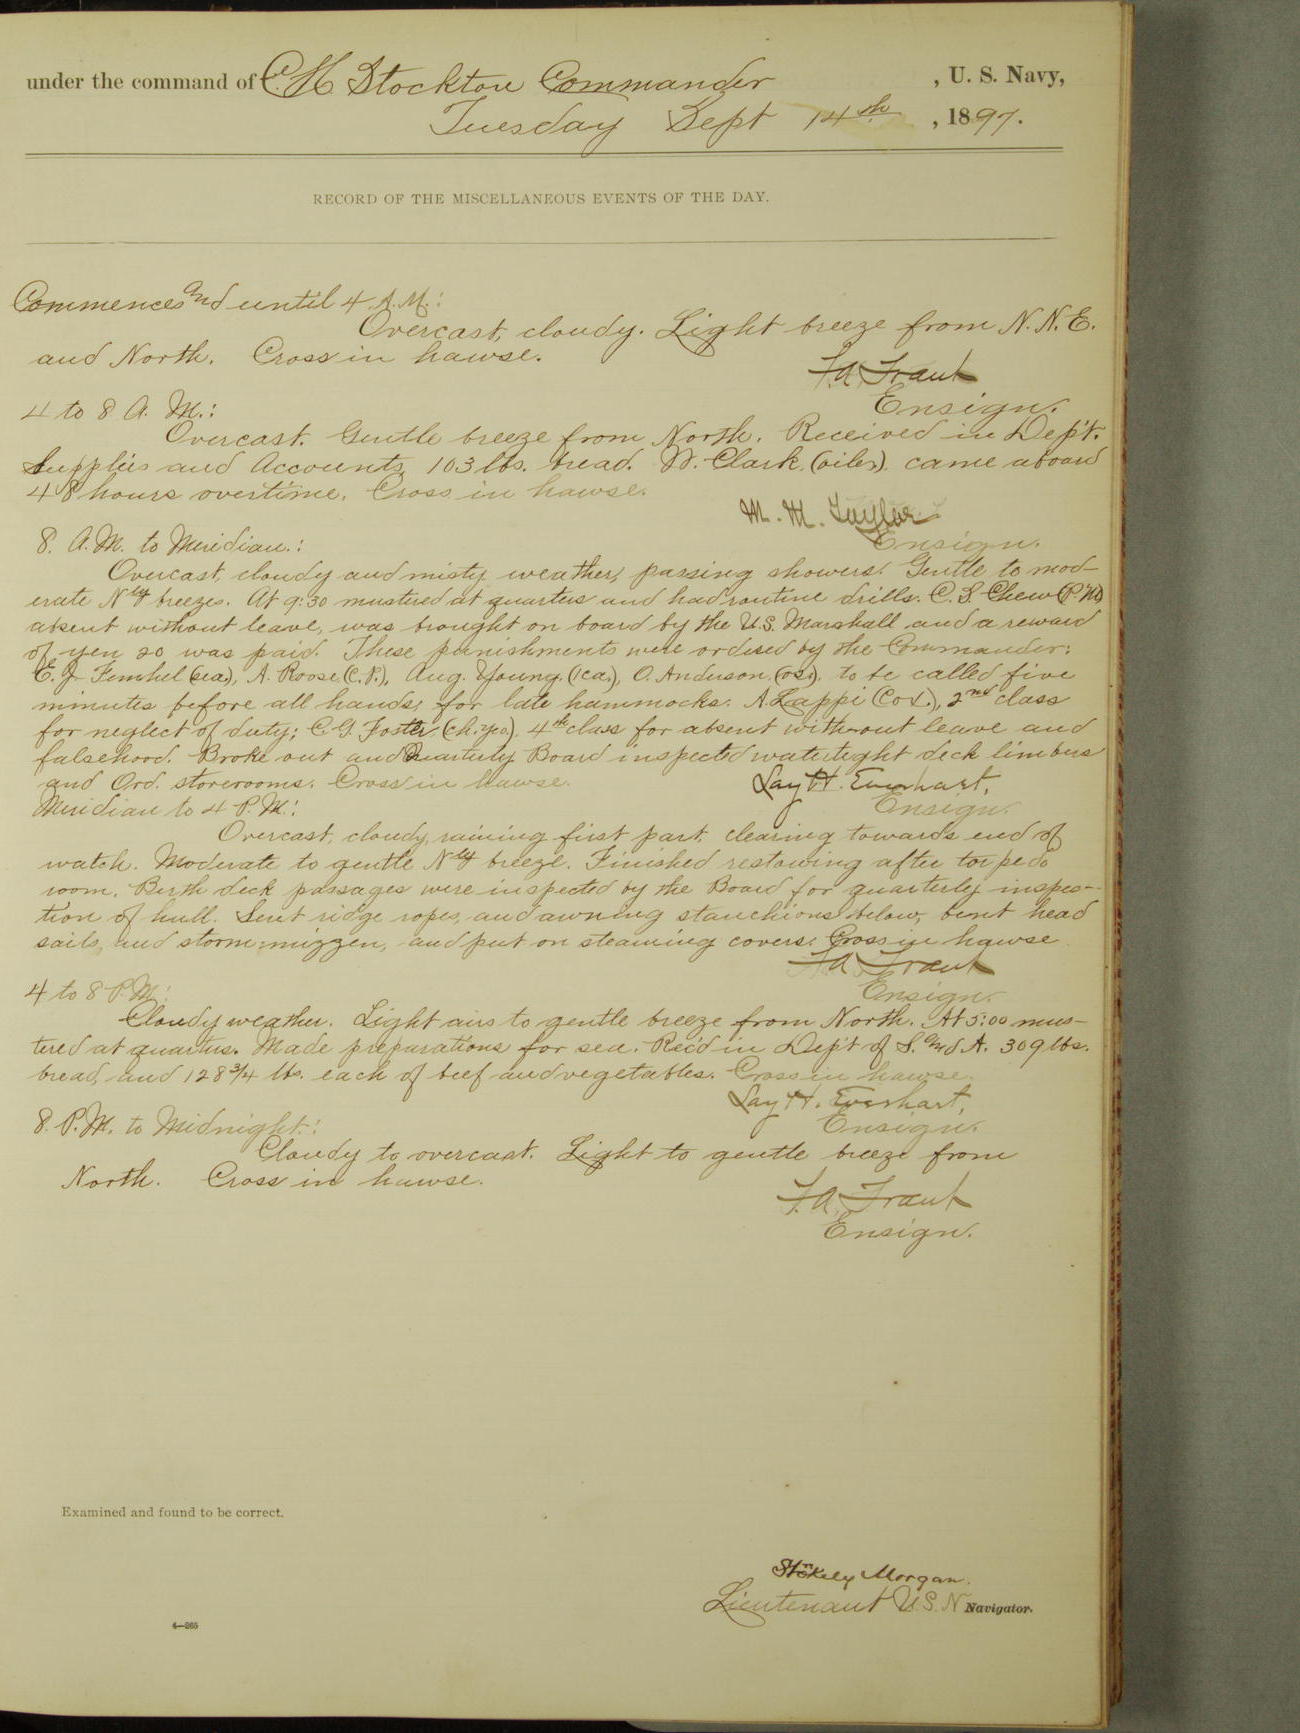 under the command of C. H. Stockton Commander , U. S. Navy,
Tuesday Sept 14th , 1897.
RECORD OF THE MISCELLANEOUS EVENTS OF THE DAY.
Commences and until 4 A.M.:
Overcast, cloudy. Light breeze from N. N. E.
and North. Cross in hawse.
F. A. Traut
Ensign.
4 to 8 A. M.:
Overcast. Gentle breeze from North. Received in Dep't.
Supplies and Accounts, 103 lbs. bread. W. Clark, (oiler), came aboard
48 hours overtime. Cross in hawse.
M. M. Taylor
Ensign.
8. A.M. to Meridian.:
Overcast, cloudy and misty weather, passing showers. Gentle to mod-
erate Nly breezes. At 9:30 mustered at quarters and had routine drills. C. S. Chew
absent without leave, was brought on board by the U.S. Marshall and a reward
of yen 20 was paid. These punishments were ordered by the Commander:
E. J. (sea), A. Roose (C. P.), Aug. Young, O. Anderson, (os), to be called five
minutes before all hands, for late hammocks. A. Lappi (Cox.), 2nd class
for neglect of duty; C. G. Foster (ch. yeo.) 4th class for absent without leave and
falsehood. Broke out and Quarterly Board inspected watertight deck limbers
and Ord. storerooms. Cross in hawse.
Lay H. Everhart,
Ensign.
Meridian to 4 P.M.:
Overcast, cloudy, raining first part, clearing towards end of
watch. Moderate to gentle Nly breeze. Finished restowing after torpedo
room. Berth deck passages were inspected by the Board for quarterly inspec-
tion of hull. Sent ridge ropes, and awning stanchions below, bent head
sails, and storm mizzen, and put on steaming covers. Cross in hawse
F. A. Traut
Ensign.
4 to 8 P.M.:
Cloudy weather. Light airs to gentle breeze from North. At 5:00 mus-
tered at quarters. Made preparations for sea. Rec'd in Dep't of S. and A. 309 lbs.
bread, and 128 3/4 lbs. each of beef and vegetables. Cross in hawse.
Lay H. Everhart,
Ensign.
8. P.M. to Midnight.:
Cloudy to overcast. Light to gentle breeze from
North. Cross in hawse.
F. A. Traut
Ensign.
Examined and found to be correct.
Stokely Morgan.
Lieutenant U.S.N. Navigator.
4—265